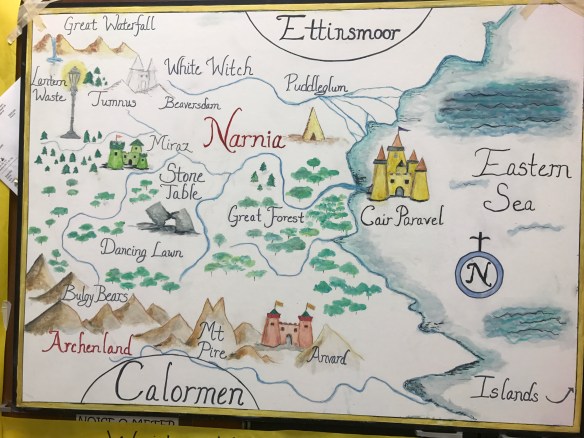 Great Waterfall
Ettinsmoor
White Witch
Lantern
Waste
Tumnus
Beaversdam
Puddleglum
Miraz
Narnia
Stone
Table
Eastern
Sea
Great Forest
Cair Paravel
Dancing Lawn
N
Bulgy Bears
Archenland
Mt
Pire
Anvard
Calormen
Islands
NOISE O METER